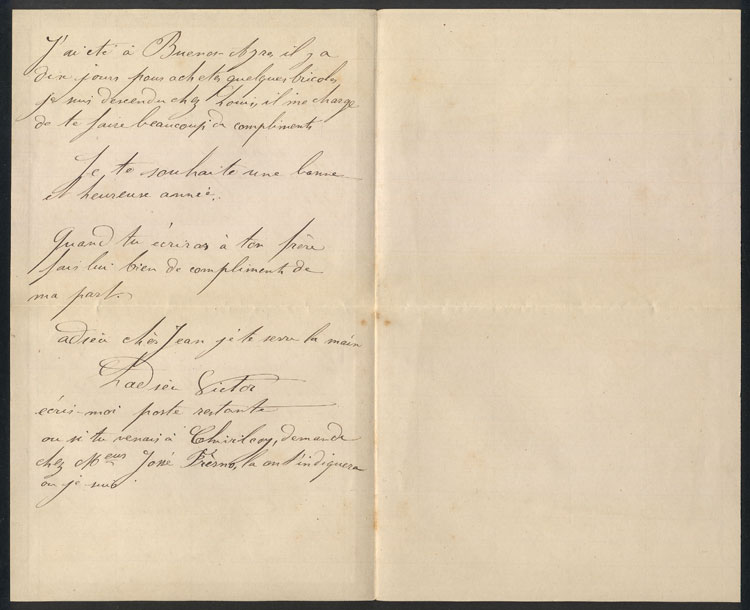 J'ai été à Buenos-Ayres il y a
dix jours pour acheter quelques bricoles
je suis descendu chez Louis, il me charge
de te faire beaucoup de compliments
Je te souhaite une bonne
et heureuse année.
Quand tu écriras à ton frère
fais lui bien de compliments de
ma part.
adieu cher Jean je te serre la main
Victor
écris-moi poste restante
ou si tu venais à Chivilcoy, demande
chez Meus José Fresno, la on t'indiquera
ou je suis